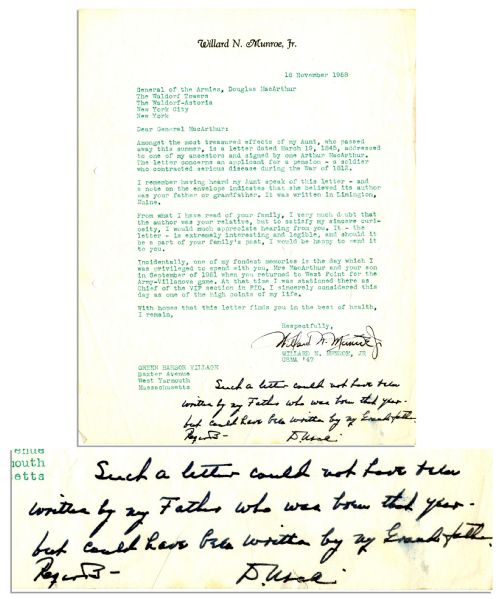 Willard N. Munroe, Jr.
18 November 1958
General of the Armies, Douglas MacArthur
The Waldorf Towers
The Waldorf-Astoria
New York City
New York
Dear General MacArthur:
Amongst the most treasured effects of my Aunt, who passed
away this summer, is a letter dated March 19, 1845, addressed
to one of my ancestors and signed by one Arthur MacArthur.
The letter concerns an applicant for a pension - a soldier
who contracted serious disease during the War of 1812.
I remember having heard my Aunt speak of this letter - and
a note on the envelope indicates that she believed its author
was your father or grandfather. It was written in Limington,
Maine.
From what I have read of your family, I very much doubt that
the author was your relative, but to satisfy my sincere curi-
osity, I would much appreciate hearing from you. It - the
letter - is extremely interesting and legible, and should it
be a part of your family's past, I would be happy to send it
to you.
Incidentally, one of my fondest memories is the day which I
was privileged to spend with you, Mrs MacArthur and your son
in September of 1951 when you returned to West Point for the
Army-Villanova game. At that time I was stationed there as
Chief of the VIP section in PIO. I sincerely considered this
day as one of the high points of my life.
With hopes that this letter finds you in the best of health,
I remain,
Respectfully,
Willard N. Munroe Jr
WILLARD N. MUNROE, JR
USMA '47
GREEN HARBOR VILLAGE
Baxter Avenue
West Yarmouth
Massachusetts
Such a letter could not have been
written by my Father who was born that year -
but could have been written by my Grandfather.
Regards -
enue
mouth
etts
Such a letter could not have been
written by my Father who was born that year -
but could have been written by my Grandfather.
Regards -